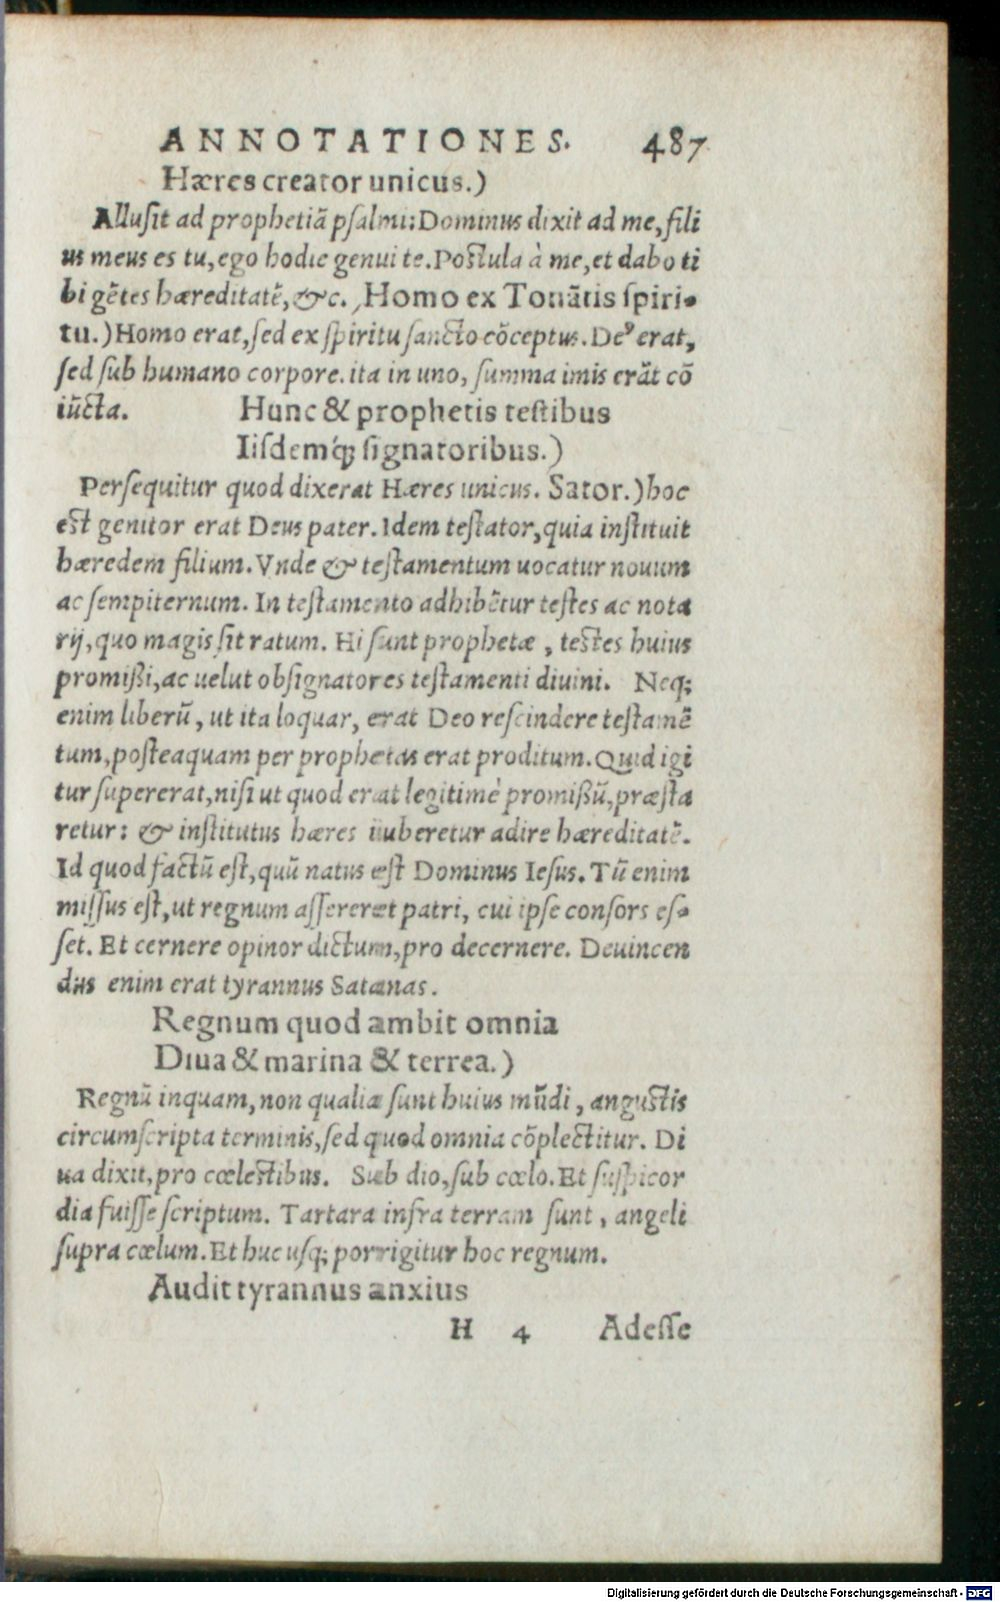 ANNOTATIONES. 487
Hæres creator unicus.)
Allusit ad prophetiã psalmi: Dominus dixit ad me, fili
us meus es tu, ego hodie genui te. Postula à me, et dabo ti
bi gẽtes hæreditatẽ, &c. Homo ex Tonãtis spiri-
tu.) Homo erat, sed ex spiritu sancto cõceptus. Deꝰ erat,
sed sub humano corpore. ita in uno, summa imis erãt cõ
iũcta. Hunc & prophetis testibus
Iisdemq́; signatoribus.)
Persequitur quod dixerat Hæres unicus. Sator.) hoc
est genitor erat Deus pater. Idem testator, quia instituit
hæredem filium. Vnde & testamentum uocatur nouum
ac sempiternum. In testamento adhibẽtur testes ac nota
rij, quo magis sit ratum. Hi sunt prophetæ, testes huius
promißi, ac uelut obsignatores testamenti diuini. Neq;
enim liberũ, ut ita loquar, erat Deo rescindere testamẽ
tum, posteaquam per prophetas erat proditum. Quid igi
tur supererat, nisi ut quod erat legitimè promißũ, præsta
retur: & institutus hæres iuberetur adire hæreditatẽ.
Id quod factũ est, quũ natus est Dominus Iesus. Tũ enim
missus est, ut regnum assereret patri, cui ipse consors es-
set. Et cernere opinor dictum, pro decernere. Deuincen
dus enim erat tyrannus Satanas.
Regnum quod ambit omnia
Diua & marina & terrea.)
Regnũ inquam, non qualia sunt huius mũdi, angustis
circumscripta terminis, sed quod omnia cõplectitur. Di
ua dixit, pro cœlestibus. Sub dio, sub cœlo. Et suspicor
dia fuisse scriptum. Tartara infra terram sunt, angeli
supra cœlum. Et huc usq; porrigitur hoc regnum.
Audit tyrannus anxius
H 4 Adesse
Digitalisierung gefördert durch die Deutsche Forschungsgemeinschaft - DFG